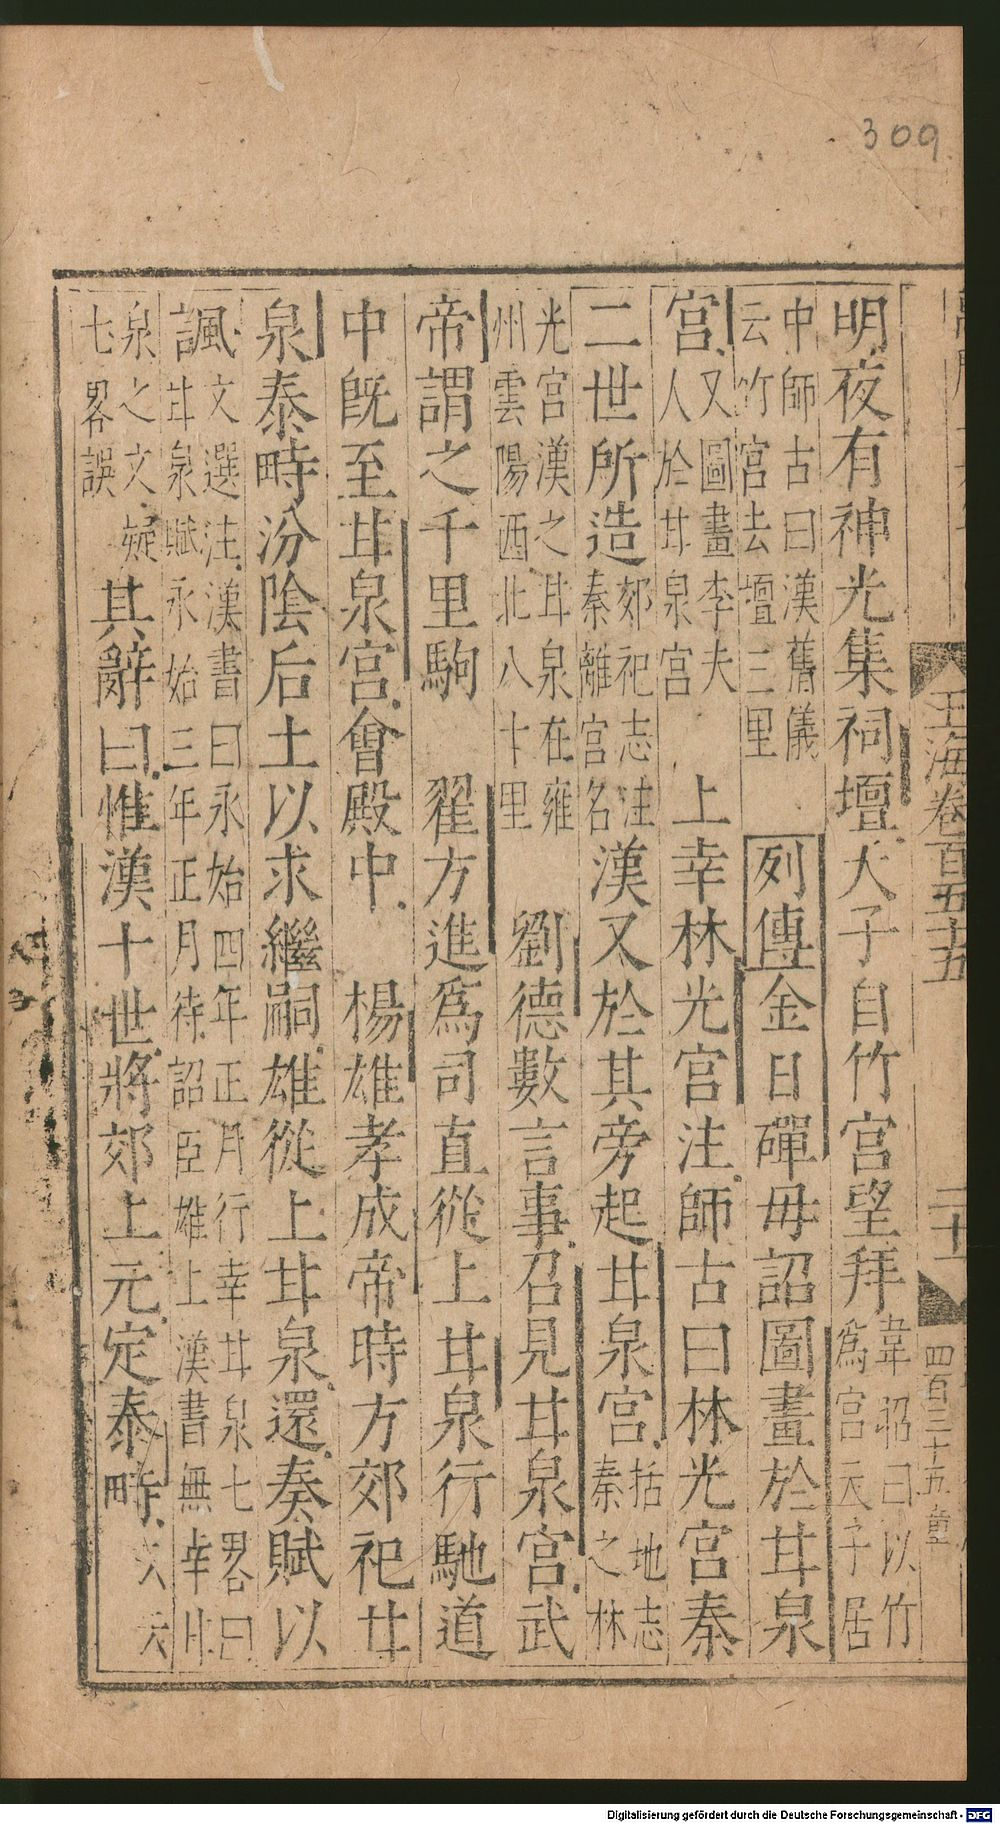 309
玉海卷百五十五
二十一
四百三十五 童
明夜有神光集祠壇天子自竹宮望拜韋昭曰以竹
為宮天子居
中師古曰漢舊儀
云竹宮去壇三里
列傳金日磾毋詔圖畫於甘泉
宮又圖畫李夫
人於甘泉宮
上幸林光宮注師古曰林光宮秦
二世所造郊祀志注
秦離宮名
漢又於其旁起甘泉宮括地志
秦之林
光宮漢之甘泉在雍
州雲陽西北八十里
劉德數言事召見甘泉宮武
帝謂之千里駒 翟方進為司直從上甘泉行馳道
中既至甘泉宮會殿中 楊雄孝成帝時方郊祀甘
泉泰畤汾陰后土以求繼嗣雄從上甘泉還奏賦以
諷文選注漢書曰永始四年正月行幸甘泉七畧曰
甘泉賦永始三年正月待詔臣雄上漢書無幸甘
泉之文疑
七畧誤
其辭曰惟漢十世將郊上元定泰畤
Digitalisierung gefördert durch die Deutsche Forschungsgemeinschaft - DFG